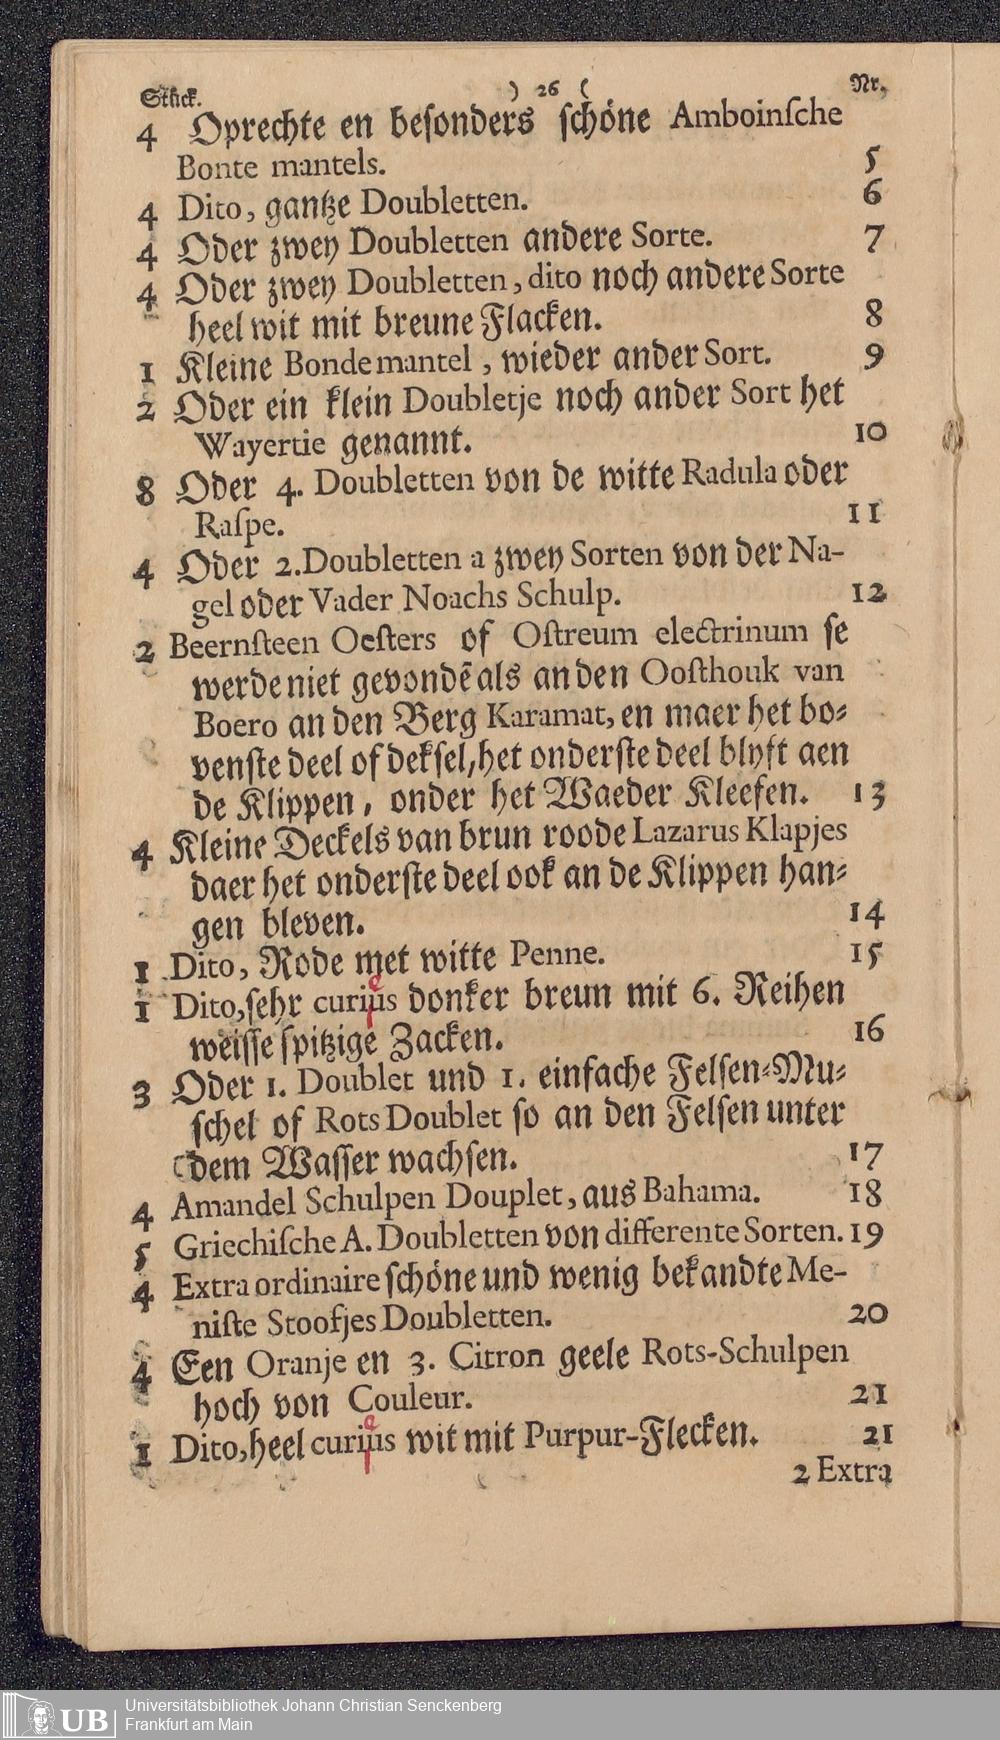 Stück. ) 26 ( Nr.
4 Oprechte en besonders schöne Amboinſche
Bonte mantels. 5
4 Dito, gantze Doubletten. 6
4 Oder zwey Doubletten andere Sorte. 7
4 Oder zwey Doubletten, dito noch andere Sorte
heel wit mit breune Flacken. 8
1 Kleine Bonde mantel, wieder ander Sort. 9
2 Oder ein klein Doubletje noch ander Sort het
Wayertie genannt. 10
8 Oder 4. Doubletten von de witte Radula oder
Raſpe. 11
4 Oder 2. Doubletten a zwey Sorten von der Na-
gel oder Vader Noachs Schulp. 12
2 Beernſteen Oeſters of Oſtreum electrinum ſe
werde niet gevondē als an den Ooſthouk van
Boero an den Berg Karamat, en maer het bo-
venſte deel of dekſel, het onderſte deel blyft aen
de Klippen, onder het Waeder Kleefen. 13
4 Kleine Deckels van brun roode Lazarus Klapjes
daer het onderſte deel ook an de Klippen han-
gen bleven. 14
1 Dito, Rode met witte Penne. 15
1 Dito, ſehr curiüs donker breun mit 6. Reihen
weiſſe ſpitzige Zacken. 16
3 Oder 1. Doublet und 1. einfache Felſen-Mu-
ſchel of Rots Doublet ſo an den Felſen unter
dem Waſſer wachſen. 17
4 Amandel Schulpen Douplet, aus Bahama. 18
5 Griechiſche A. Doubletten von differente Sorten. 19
4 Extra ordinaire ſchöne und wenig bekandte Me-
niſte Stoofjes Doubletten. 20
4 Een Oranje en 3. Citron geele Rots-Schulpen
hoch von Couleur. 21
1 Dito, heel curiüs wit mit Purpur-Flecken. 21
2 Extra
UB Universitätsbibliothek Johann Christian Senckenberg
Frankfurt am Main